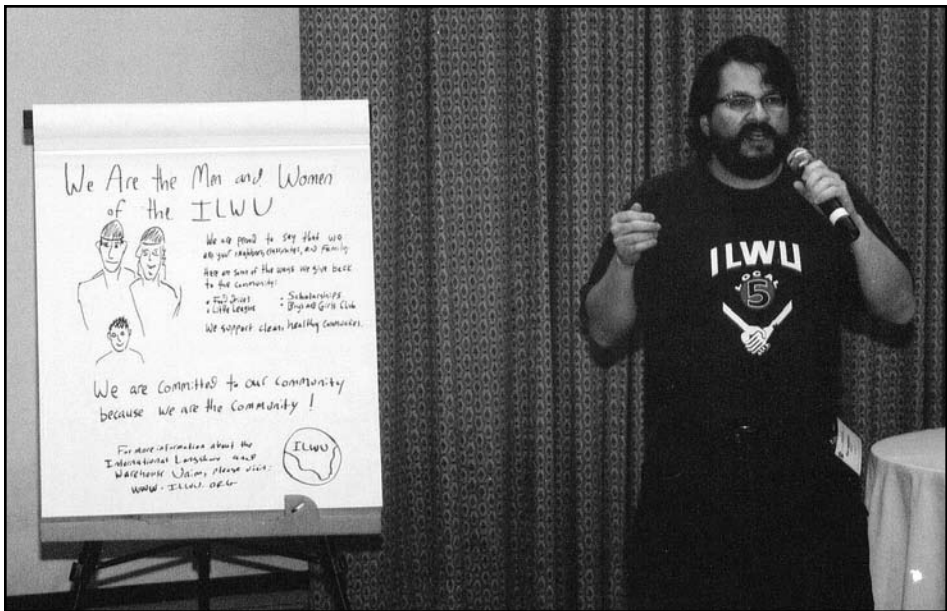 We Are the Men and Women
of the ILWU
We are proud to say that we
are your neighbors, classmates, and Family.
Here are some of the ways we give back
to the community:
• Food Drives
• Little League
• Scholarships
• Boys and Girls Club
We support clean, healthy communities.
We are committed to our community
because we are the community!
For more information about the
International Longshore and
Warehouse Union, please visit:
WWW.ILWU.ORG
ILWU
ILWU
LOCAL
5